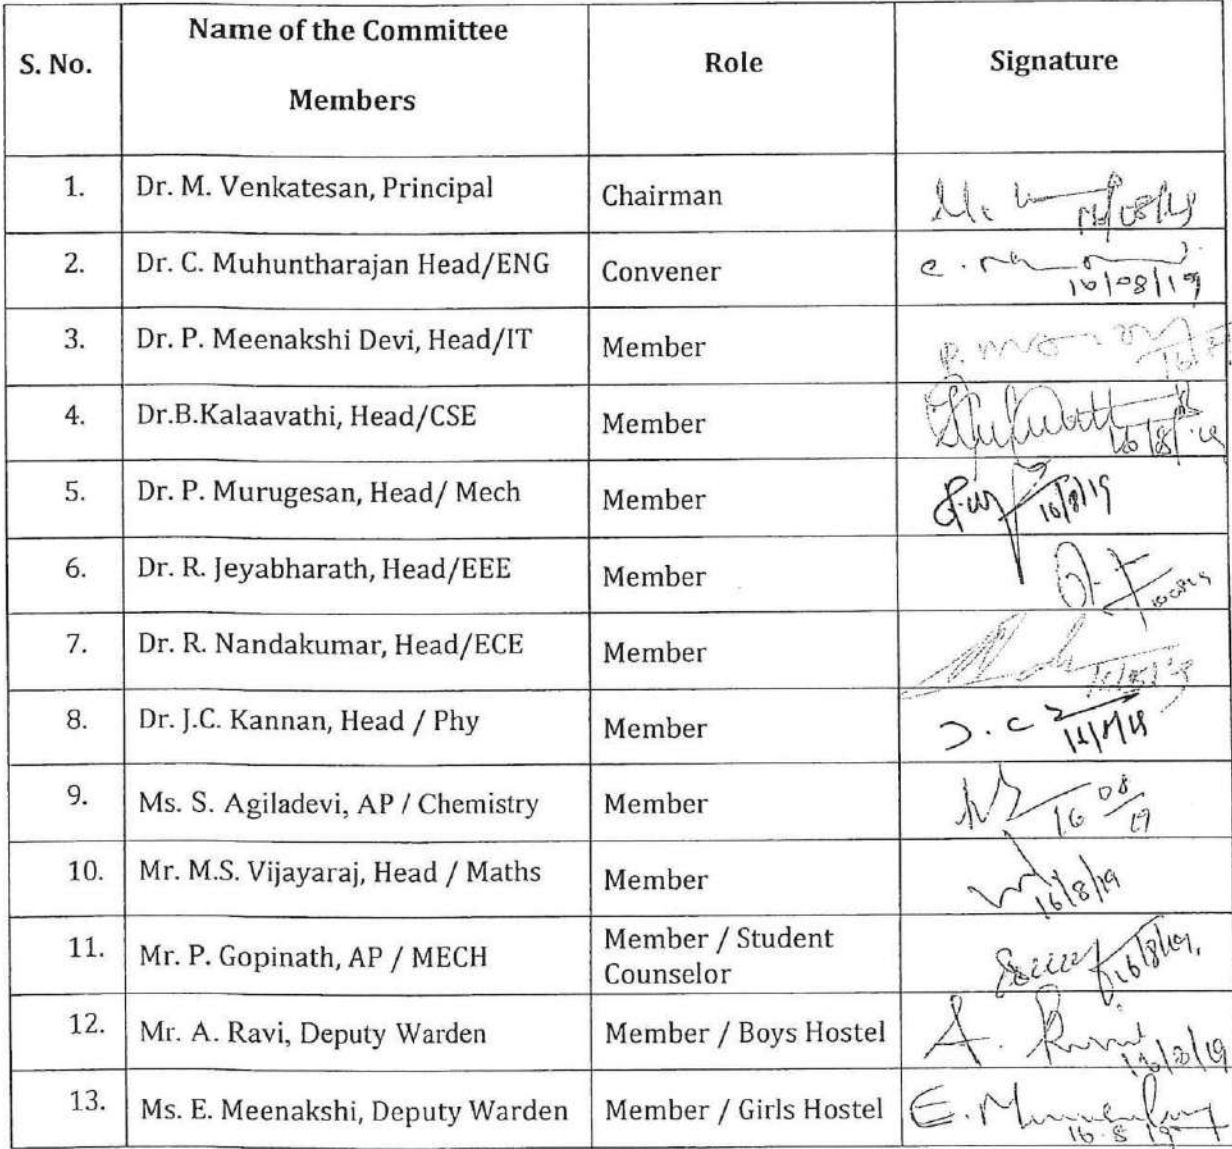 S. No.
Name of the Committee
Members
Role
Signature
1.
Dr. M. Venkatesan, Principal
Chairman
2.
Dr. C. Muhuntharajan Head/ENG
Convener
16/08/19
3.
Dr. P. Meenakshi Devi, Head/IT
Member
4.
Dr.B.Kalaavathi, Head/CSE
Member
5.
Dr. P. Murugesan, Head/ Mech
Member
16/8/19
6.
Dr. R. Jeyabharath, Head/EEE
Member
7.
Dr. R. Nandakumar, Head/ECE
Member
8.
Dr. J.C. Kannan, Head / Phy
Member
9.
Ms. S. Agiladevi, AP / Chemistry
Member
16 08
19
10.
Mr. M.S. Vijayaraj, Head / Maths
Member
16/8/19
11.
Mr. P. Gopinath, AP / MECH
Member / Student
Counselor
16/8/19
12.
Mr. A. Ravi, Deputy Warden
Member / Boys Hostel
A. Ravi
16/8/19
13.
Ms. E. Meenakshi, Deputy Warden
Member / Girls Hostel
16.8.19